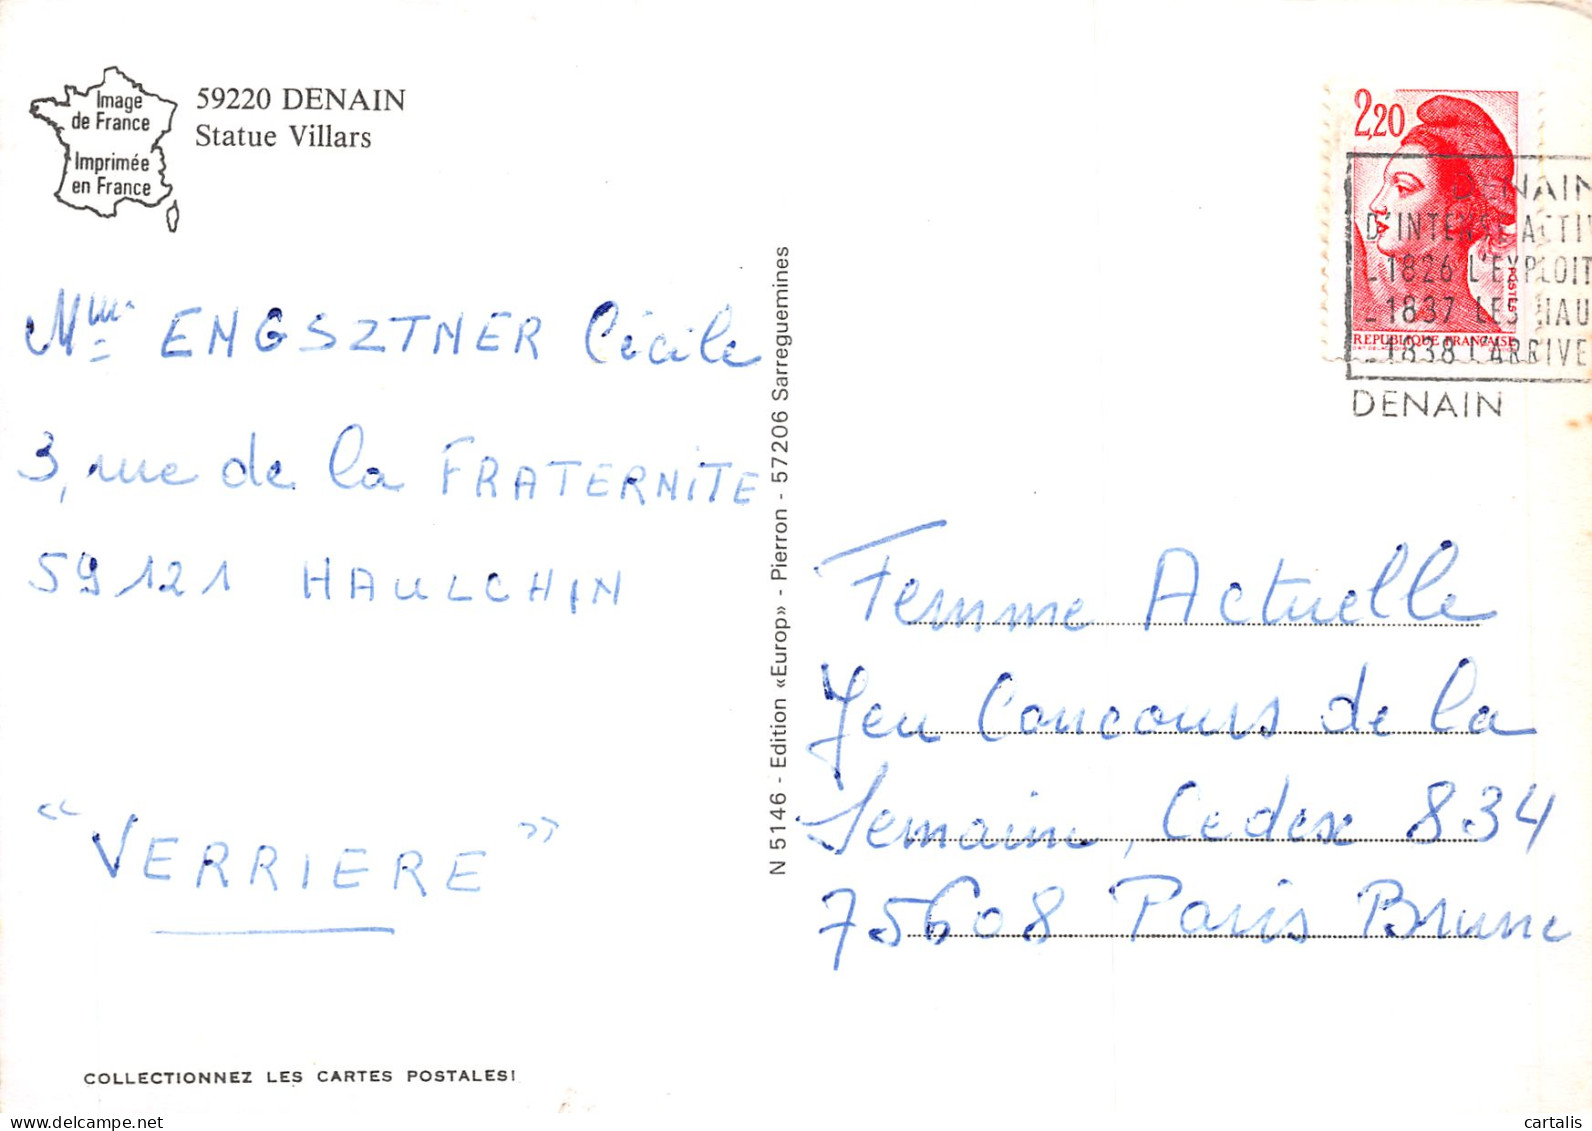 Image
de France
Imprimée
en France
59220 DENAIN
Statue Villars
2,20
POSTES
REPUBLIQUE FRANÇAISE
DENAIN
D'INTENSE ACTIV
-1826 L'EXPLOIT
-1837 LES HAU
-1838 L'ARRIVE
DENAIN
Mme ENGSZTNER Cécile
3, rue de la FRATERNITE
59121 HAULCHIN
"VERRIERE"
N 5146 - Edition «Europ» - Pierron - 57206 Sarreguemines
Femme Actuelle
Jeu Concours de la
Semaine, Cedex 834
75608 Paris Brune
COLLECTIONNEZ LES CARTES POSTALES!
delcampe.net
cartalis